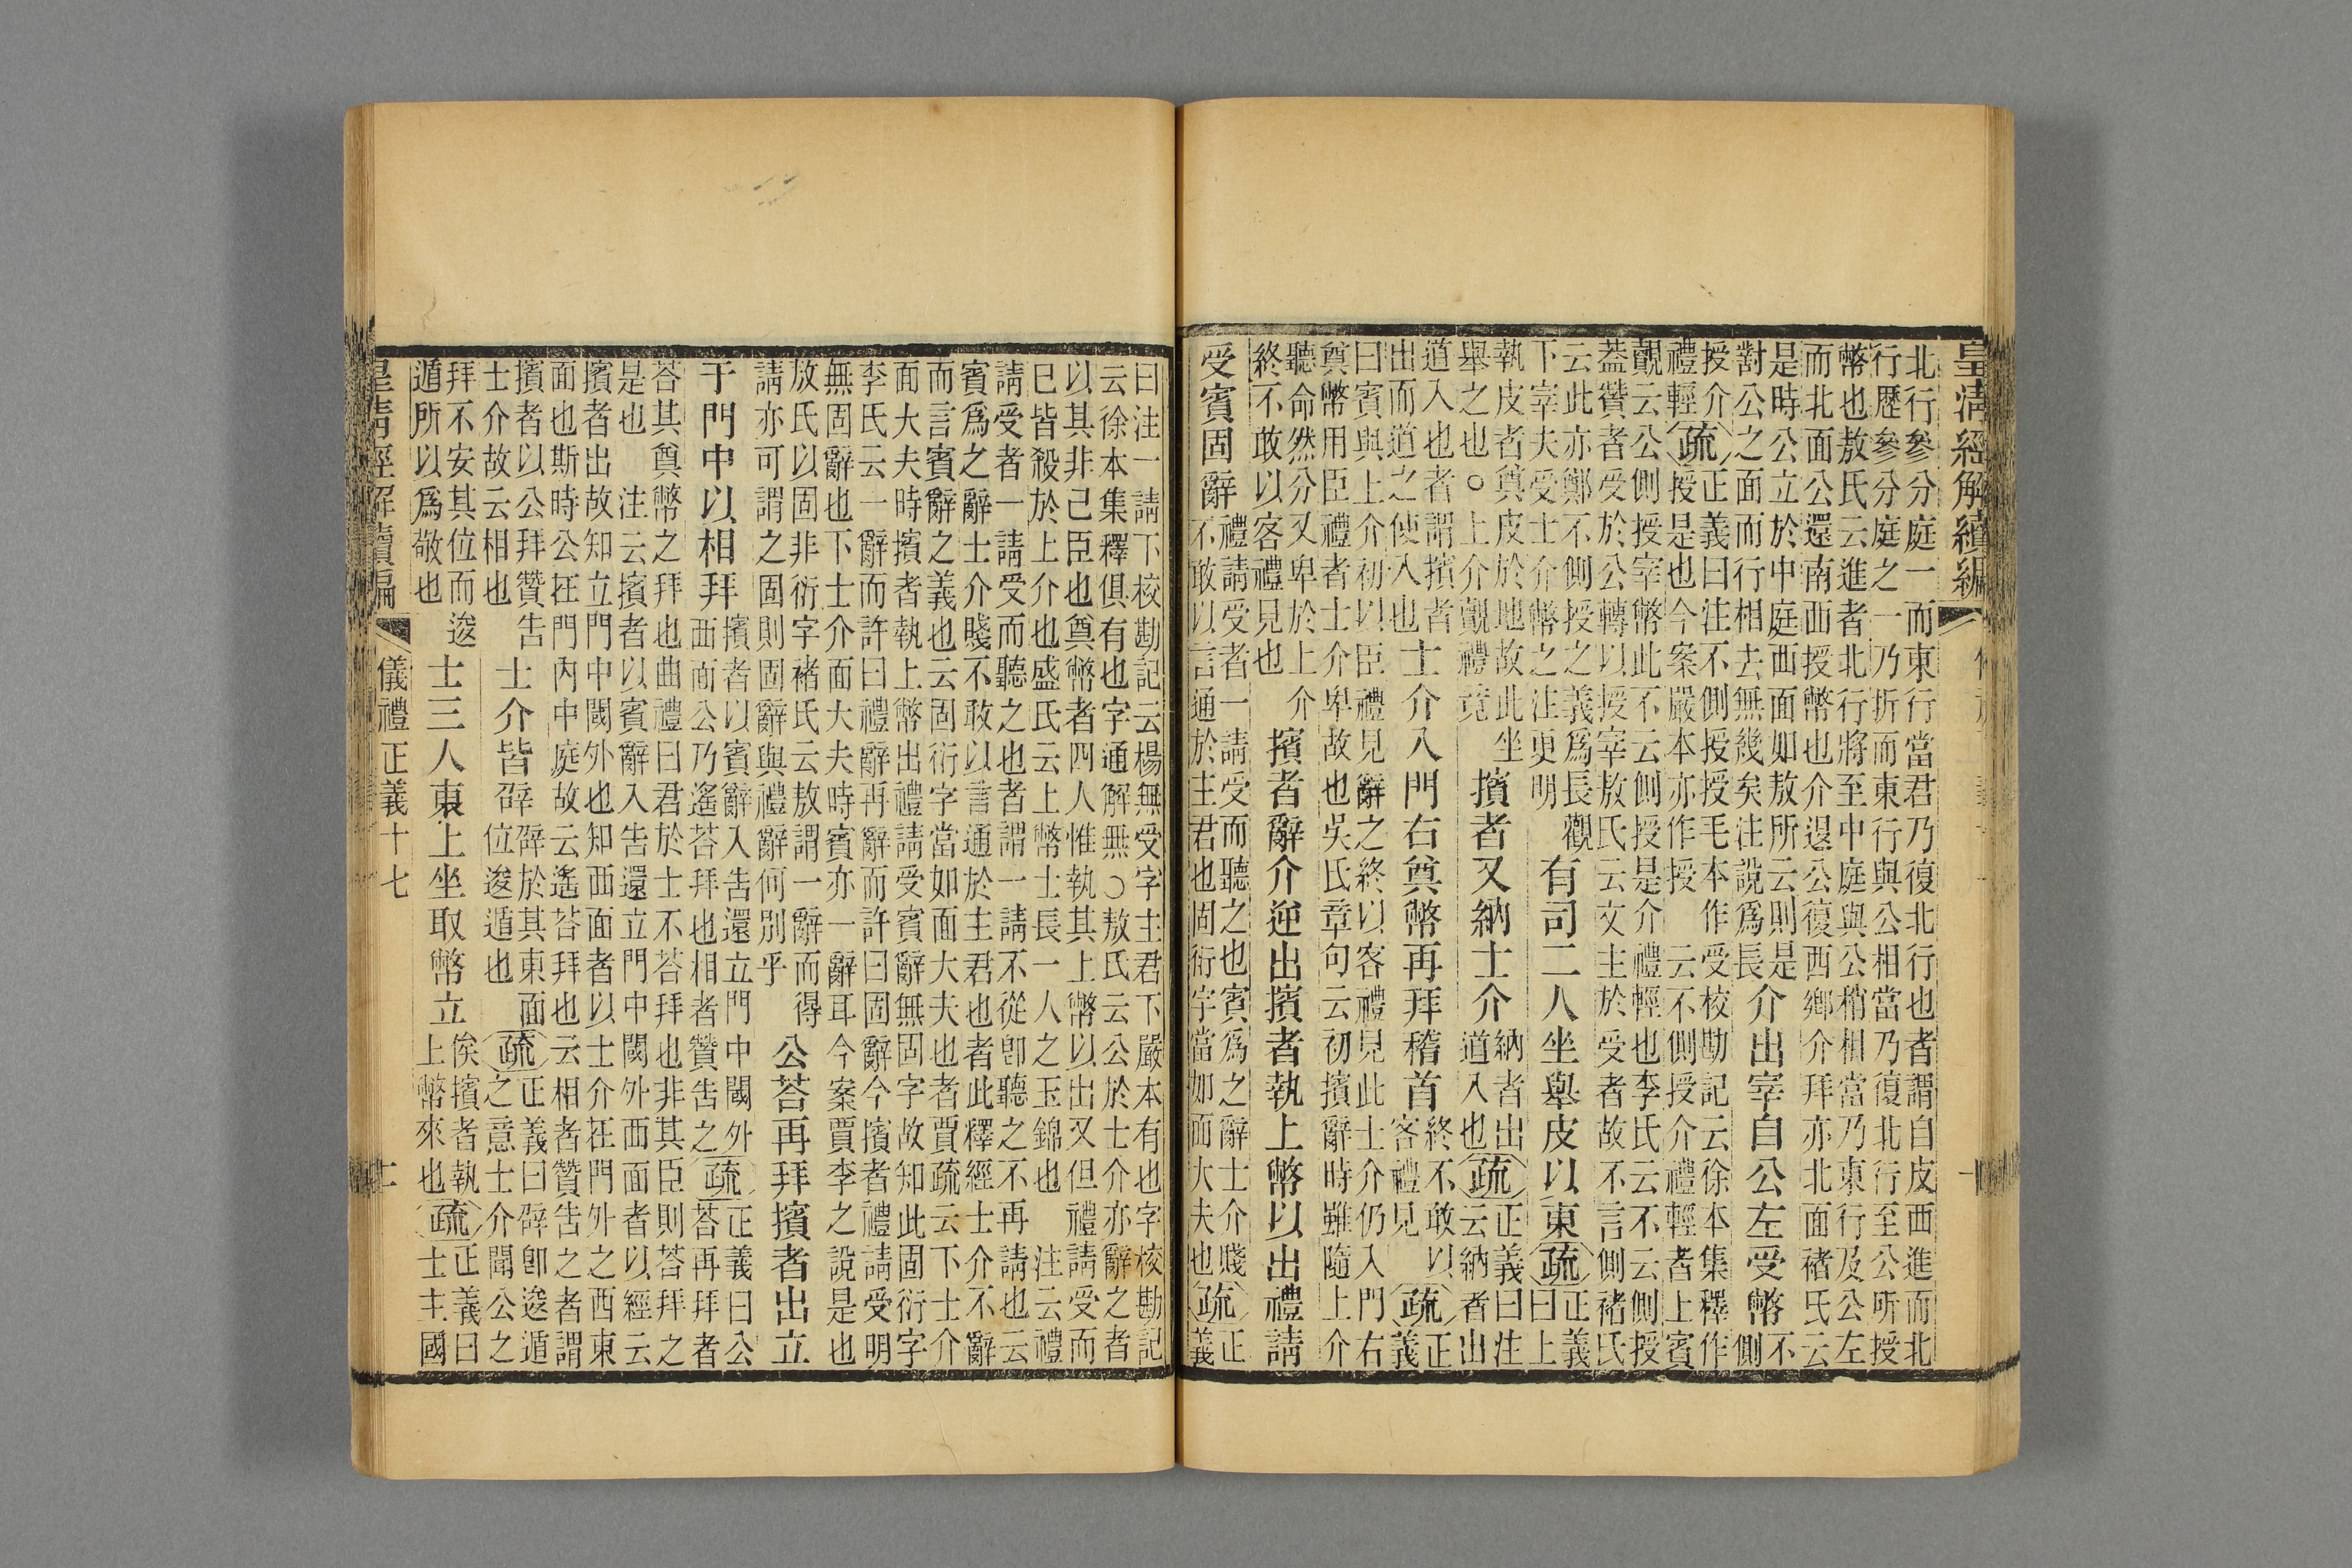 皇淸經解續編
北行參分庭一而東行當君乃復北行也者謂自皮西進而北
行歷參分庭之一乃折而東行與公相當乃復北行至公所授
幣也敖氏云進者北行將至中庭與公稍相當乃東行及公左
而北面公還南面授幣也介退公復西鄉介拜亦北面褚氏云
是時公立於中庭西面如敖所云則是
對公之面而行相去無幾矣注說爲長
介出宰自公左受幣
不
側
授介
禮輕
疏
正義曰注不側授授毛本作受校勘記云徐本集釋作
授是也今案嚴本亦作授 云不側授介禮輕者上賓
覿云公側授宰幣此不云側授是介禮輕也李氏云不云側授
蓋贊者受於公轉以授宰敖氏云文主於受者故不言側褚氏
云此亦鄭不側授之義爲長觀
下宰夫受士介幣之注更明
有司二人坐舉皮以東
疏
正義
曰上
執皮者奠皮於地故此坐
舉之也○上介覿禮竟
擯者又納士介
納者出
道入也
疏
正義曰注
云納者出
道入也者謂擯者
出而道之使入也
士介入門右奠幣再拜稽首
終不敢以
客禮見
疏
正
義
曰賓與上介初以臣禮見辭之終以客禮見此士介仍入門右
奠幣用臣禮者士介卑故也吳氏章句云初擯辭時雖隨上介
聽命然分又卑於上介
終不敢以客禮見也
擯者辭介逆出擯者執上幣以出禮請
受賓固辭
禮請受者一請受而聽之也賓爲之辭士介賤
不敢以言通於主君也固衍字當如面大夫也
疏
正
義
曰注一請下校勘記云楊無受字主君下嚴本有也字校勘記
云徐本集釋俱有也字通解無○敖氏云公於士介亦辭之者
以其非己臣也奠幣者四人惟執其上幣以出又但禮請受而
已皆殺於上介也盛氏云上幣士長一人之玉錦也 注云禮
請受者一請受而聽之也者謂一請不從卽聽之不再請也云
賓爲之辭士介賤不敢以言通於主君也者此釋經士介不辭
而言賓辭之義也云固衍字當如面大夫也者賈疏云下士介
面大夫時擯者執上幣出禮請受賓辭無固字故知此固衍字
李氏云一辭而許曰禮辭再辭而許曰固辭今擯者禮請受明
無固辭也下士介面大夫時賓亦一辭耳今案賈李之說是也
敖氏以固非衍字褚氏云敖謂一辭而得
請亦可謂之固則固辭與禮辭何別乎
公荅再拜擯者出立
于門中以相拜
擯者以賓辭入告還立門中闑外
西面公乃遙荅拜也相者贊告之
疏
正義曰公
荅再拜者
荅其奠幣之拜也曲禮曰君於士不荅拜也非其臣則荅拜之
是也 注云擯者以賓辭入告還立門中闑外西面者以經云
擯者出故知立門中闑外也知西面者以士介在門外之西東
面也斯時公在門內中庭故云遙荅拜也云相者贊告之者謂
擯者以公拜贊告
士介故云相也
士介皆辟
辟於其東面
位逡遁也
疏
正義曰辟卽逡遁
之意士介聞公之
拜不安其位而逡
遁所以爲敬也
士三人東上坐取幣立
俟擯者執
上幣來也
疏
正義曰
士主國
皇淸經解續編
儀禮正義十七